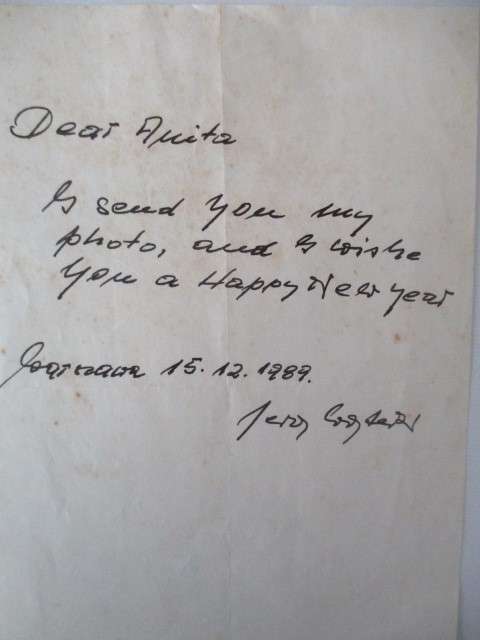 Dear Anita
I send you my
photo, and I wishe
you a Happy New year
Warszawa 15.12.1989.
Jerzy